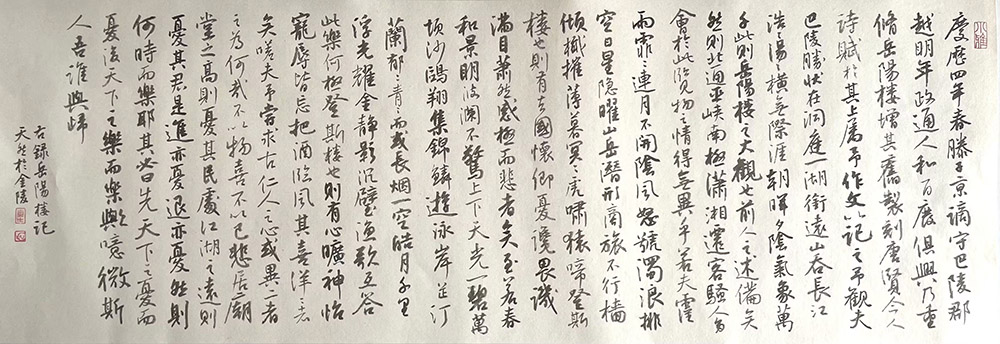 慶歷四年春滕子京謫守巴陵郡
越明年政通人和百廢俱興乃重
脩岳陽樓增其舊製刻唐賢今人
詩賦於其上屬予作文以記之予觀夫
巴陵勝狀在洞庭一湖銜遠山吞長江
浩〻湯〻橫無際涯朝暉夕陰氣象萬
千此則岳陽樓之大觀也前人之述備矣
然則北通巫峽南極瀟湘遷客騷人多
會於此覽物之情得無異乎若夫霪
雨霏〻連月不開陰風怒號濁浪排
空日星隱曜山岳潛形商旅不行檣
傾檝摧薄暮冥〻虎嘯猿啼登斯
樓也則有去國懷鄉憂讒畏譏
滿目蕭然感極而悲者矣至若春
和景明波瀾不驚上下天光一碧萬
頃沙鷗翔集錦鱗遊泳岸芷汀
蘭郁〻青〻而或長烟一空皓月千里
浮光耀金靜影沉璧漁歌互答
此樂何極登斯樓也則有心曠神怡
寵辱皆忘把酒臨風其喜洋〻者
矣嗟夫予嘗求古仁人之心或異二者
之為何哉不以物喜不以己悲居廟
堂之高則憂其民處江湖之遠則
憂其君是進亦憂退亦憂然則
何時而樂耶其必曰先天下之憂而
憂後天下之樂而樂歟噫微斯
人吾誰與歸
右錄岳陽樓記
於金陵